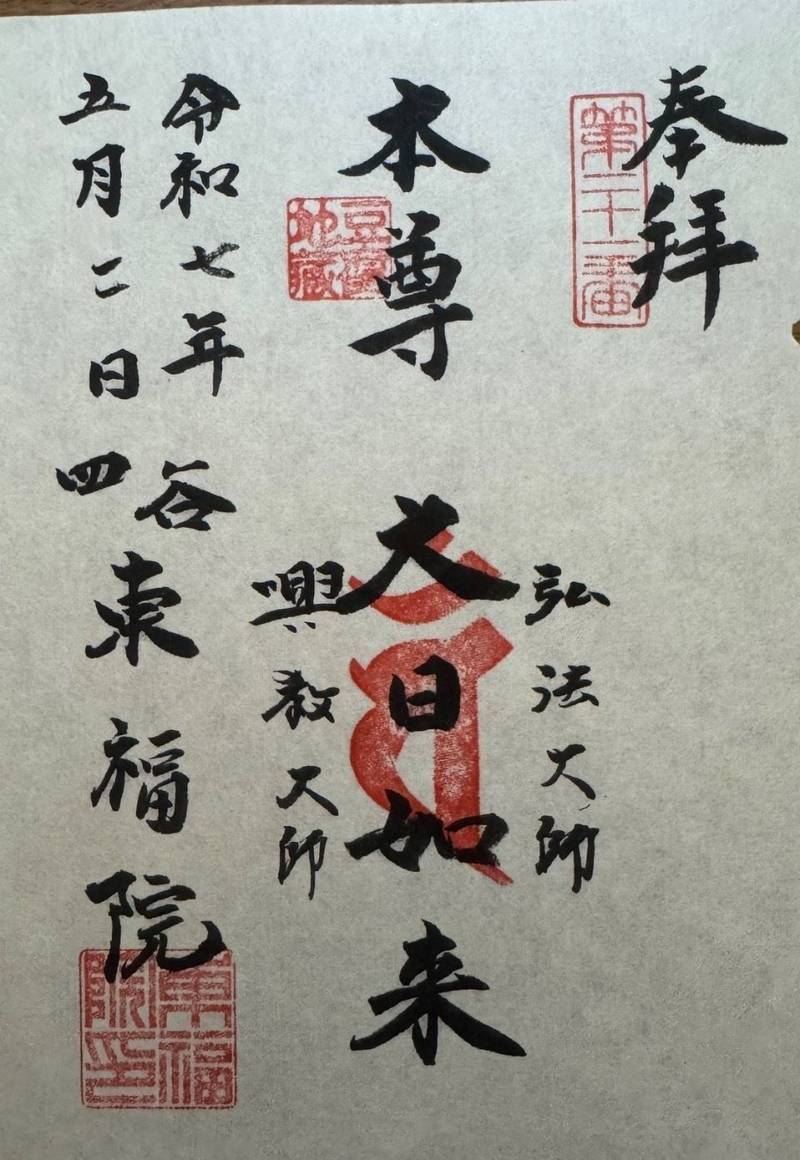 奉拝
第二十一番
弘法大師
本尊 大日如来
豆腐地蔵
興教大師
令和七年
五月二日
四谷
東福院
東福院印